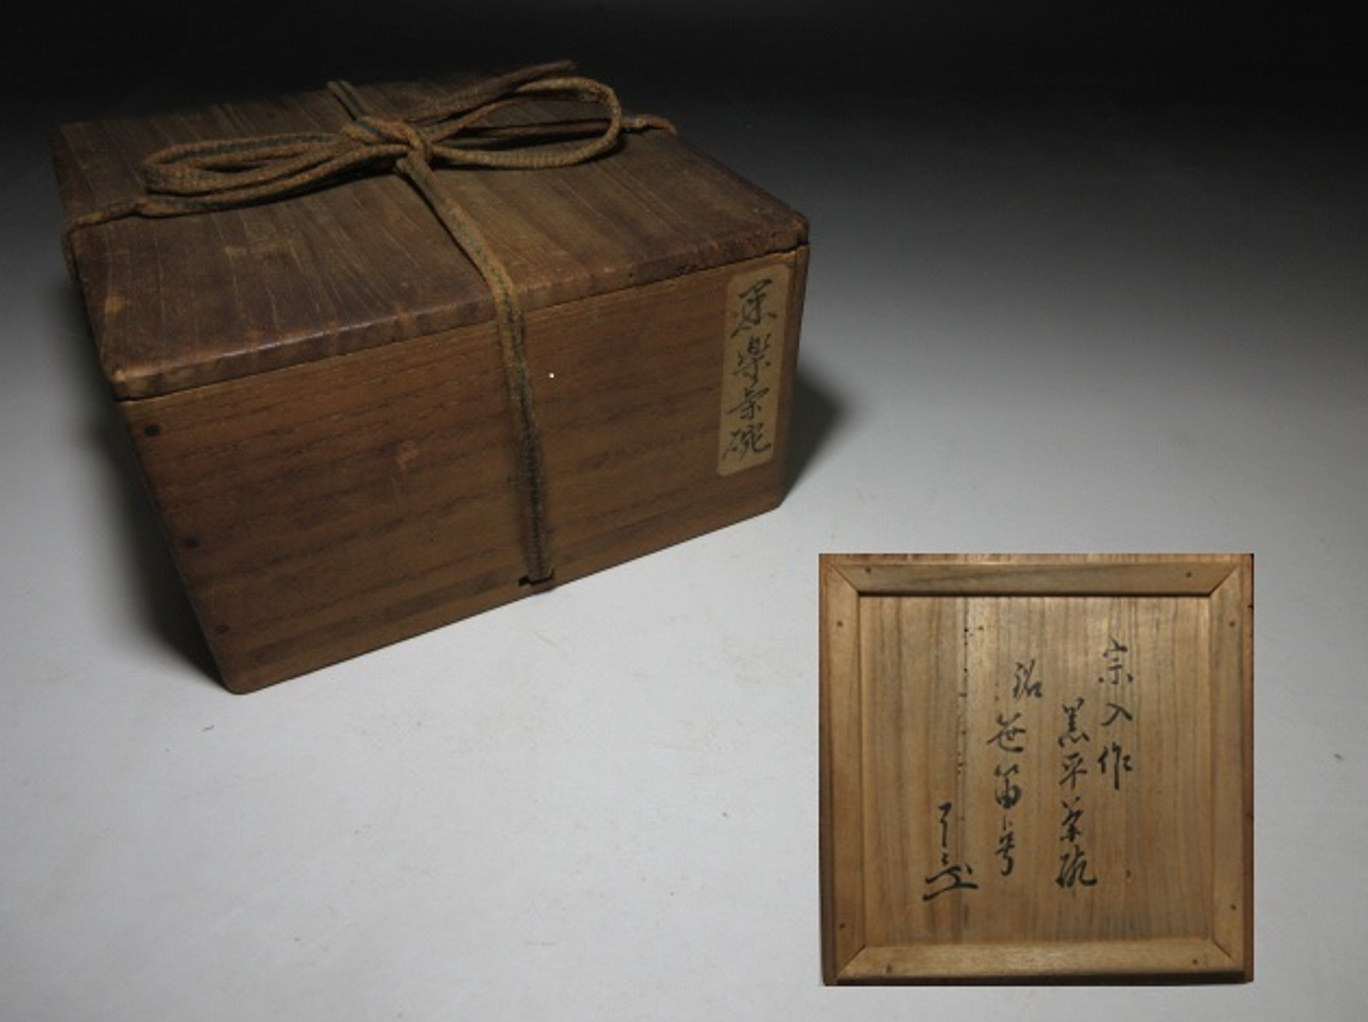 黒楽茶碗
宗入作
黒平茶碗
銘 笹笛ト号